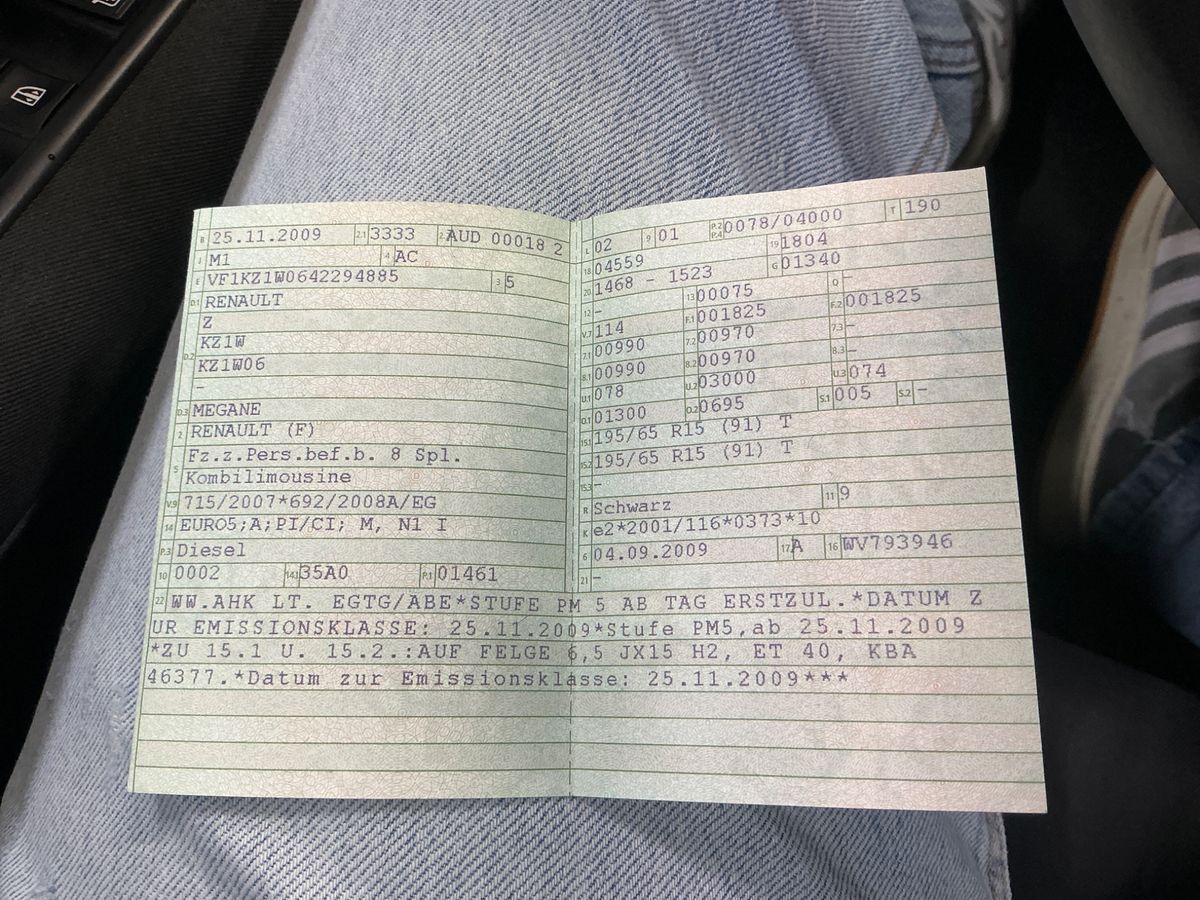 B 25.11.2009 2.1 3333 2.2 AUD 00018 2
J M1 4 AC
E VF1KZ1W0642294885 3 5
D.1 RENAULT
Z
D.2 KZ1W
KZ1W06
–
D.3 MEGANE
2 RENAULT (F)
5 Fz.z.Pers.bef.b. 8 Spl.
Kombilimousine
V.9 715/2007*692/2008A/EG
14 EURO5;A;PI/CI; M, N1 I
P.3 Diesel
10 0002 14.1 35A0 P.1 01461
L 02 9 01 P.2 P.4 0078/04000 T 190
18 04559 19 1804
20 1468 - 1523 G 01340
12 – 13 00075 Q –
V.7 114 F.1 001825 F.2 001825
7.1 00990 7.2 00970 7.3 –
8.1 00990 8.2 00970 8.3 –
U.1 078 U.2 03000 U.3 074
O.1 01300 O.2 0695 S.1 005 S.2 –
15.1 195/65 R15 (91) T
15.2 195/65 R15 (91) T
15.3 –
R Schwarz 11 9
K e2*2001/116*0373*10
6 04.09.2009 17 A 16 WV793946
21 –
22 WW.AHK LT. EGTG/ABE*STUFE PM 5 AB TAG ERSTZUL.*DATUM Z
UR EMISSIONSKLASSE: 25.11.2009*Stufe PM5,ab 25.11.2009
*ZU 15.1 U. 15.2.:AUF FELGE 6,5 JX15 H2, ET 40, KBA
46377.*Datum zur Emissionsklasse: 25.11.2009***